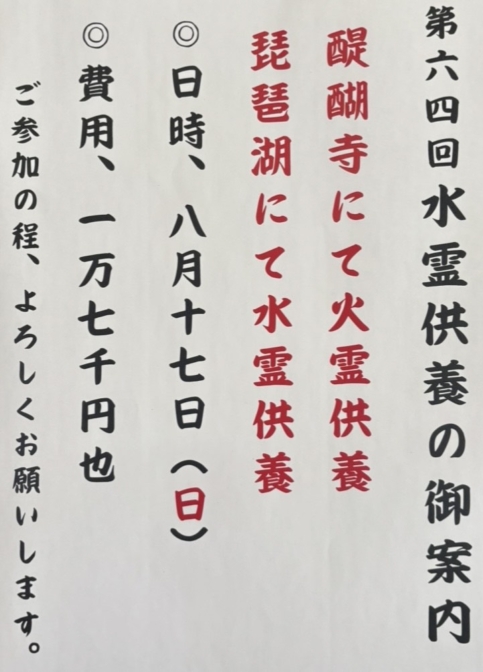 第六四回水霊供養の御案内
醍醐寺にて火霊供養
琵琶湖にて水霊供養
◎日時、八月十七日（日）
◎費用、一万七千円也
ご参加の程、よろしくお願いします。